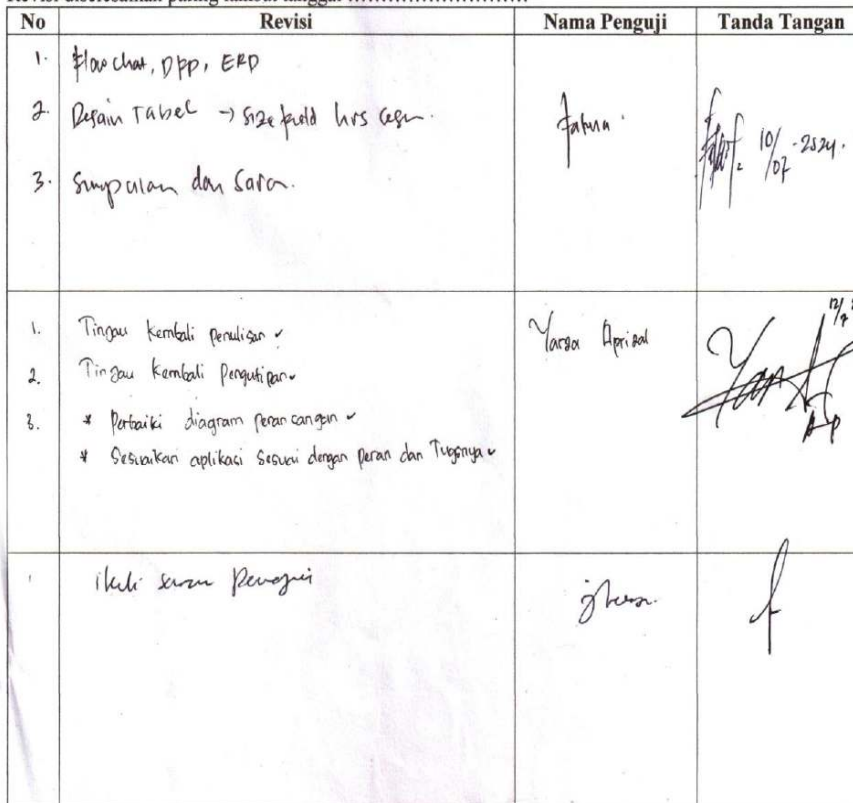 Revisi diselesaikan paling lambat tanggal ..............................
No Revisi Nama Penguji Tanda Tangan
1. Flowchat, DFD, ERD
2. Desain Tabel → size field hrs
3. Simpulan dan Saran.
10/07-2024.
1. Tinjau kembali penulisan ✓ Yarza Aprizal
2. Tinjau kembali Pengutipan ✓
3. * Perbaiki diagram perancangan ✓
* Sesuaikan aplikasi sesuai dengan peran dan Tugsnya ✓
12/7
1 ikuti saran Penguji